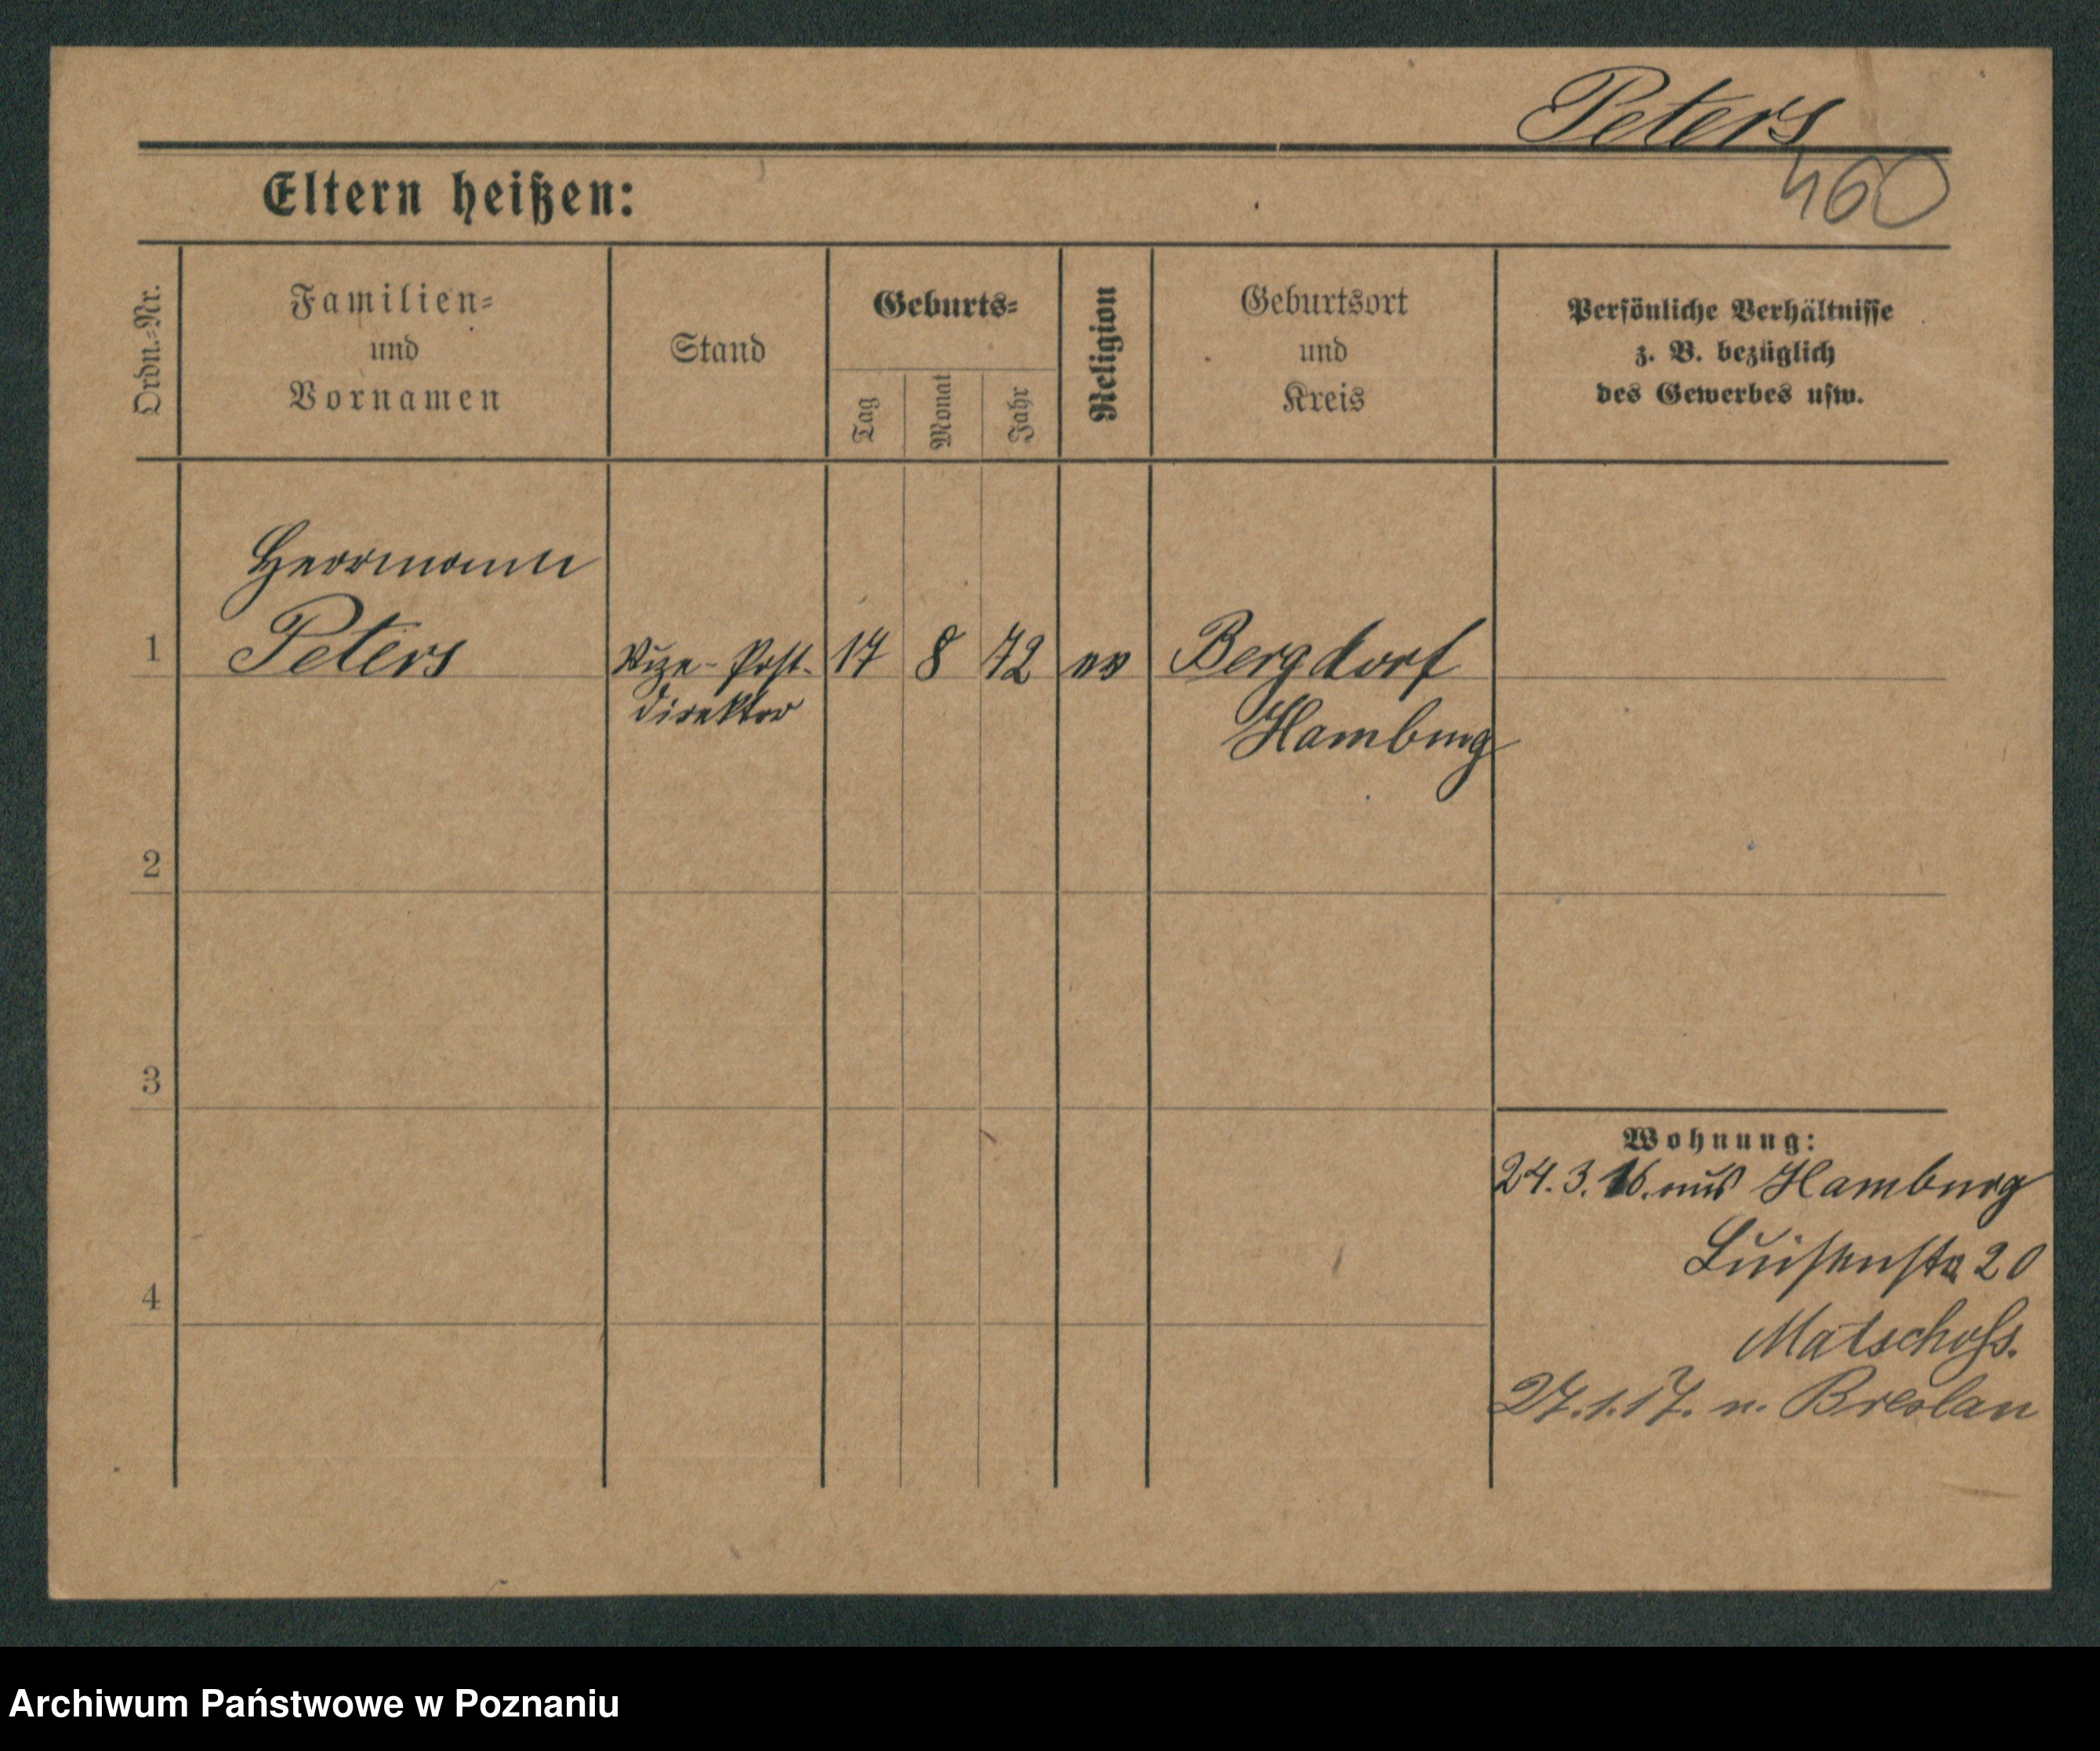 Peters
460
Eltern heißen:
Ordn.-Nr.
Familien-
und
Vornamen
Stand
Geburts-
Tag
Monat
Jahr
Religion
Geburtsort
und
Kreis
Persönliche Verhältnisse
z. B. bezüglich
des Gewerbes usw.
Herrmann
1 Peters Vize-Post- 17 8 72 ev Bergdorf
direktor Hamburg
2
3
Wohnung:
24. 3. 16. aus Hamburg
Luisenstr 20
4
Matschoss.
27. 1. 17. n. Breslau
Archiwum Państwowe w Poznaniu